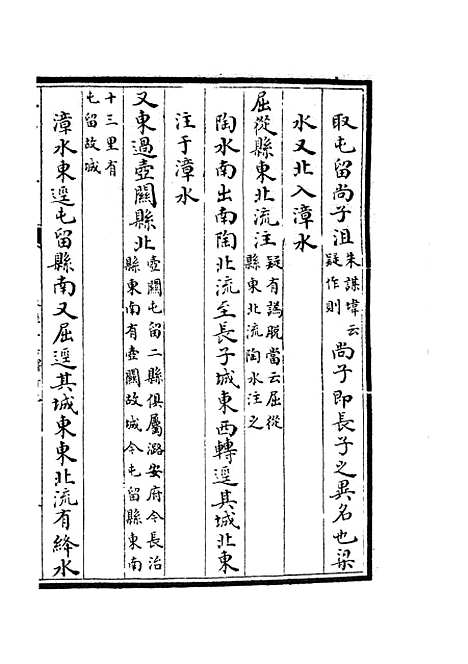 取屯留尚子沮朱謀㙔云疑作則尚子即長子之異名也梁
水又北入漳水
屈從縣東北流注疑有譌脱當云屈從縣東北流陶水注之
陶水南出南陶北流至長子城東西轉逕其城北東
注于漳水
又東過壺關縣北壺關屯留二縣俱屬潞安府今長治縣東南有壺關故城今屯留縣東南
十三里有屯留故城
漳水東逕屯留縣南又屈逕其城東東北流有絳水